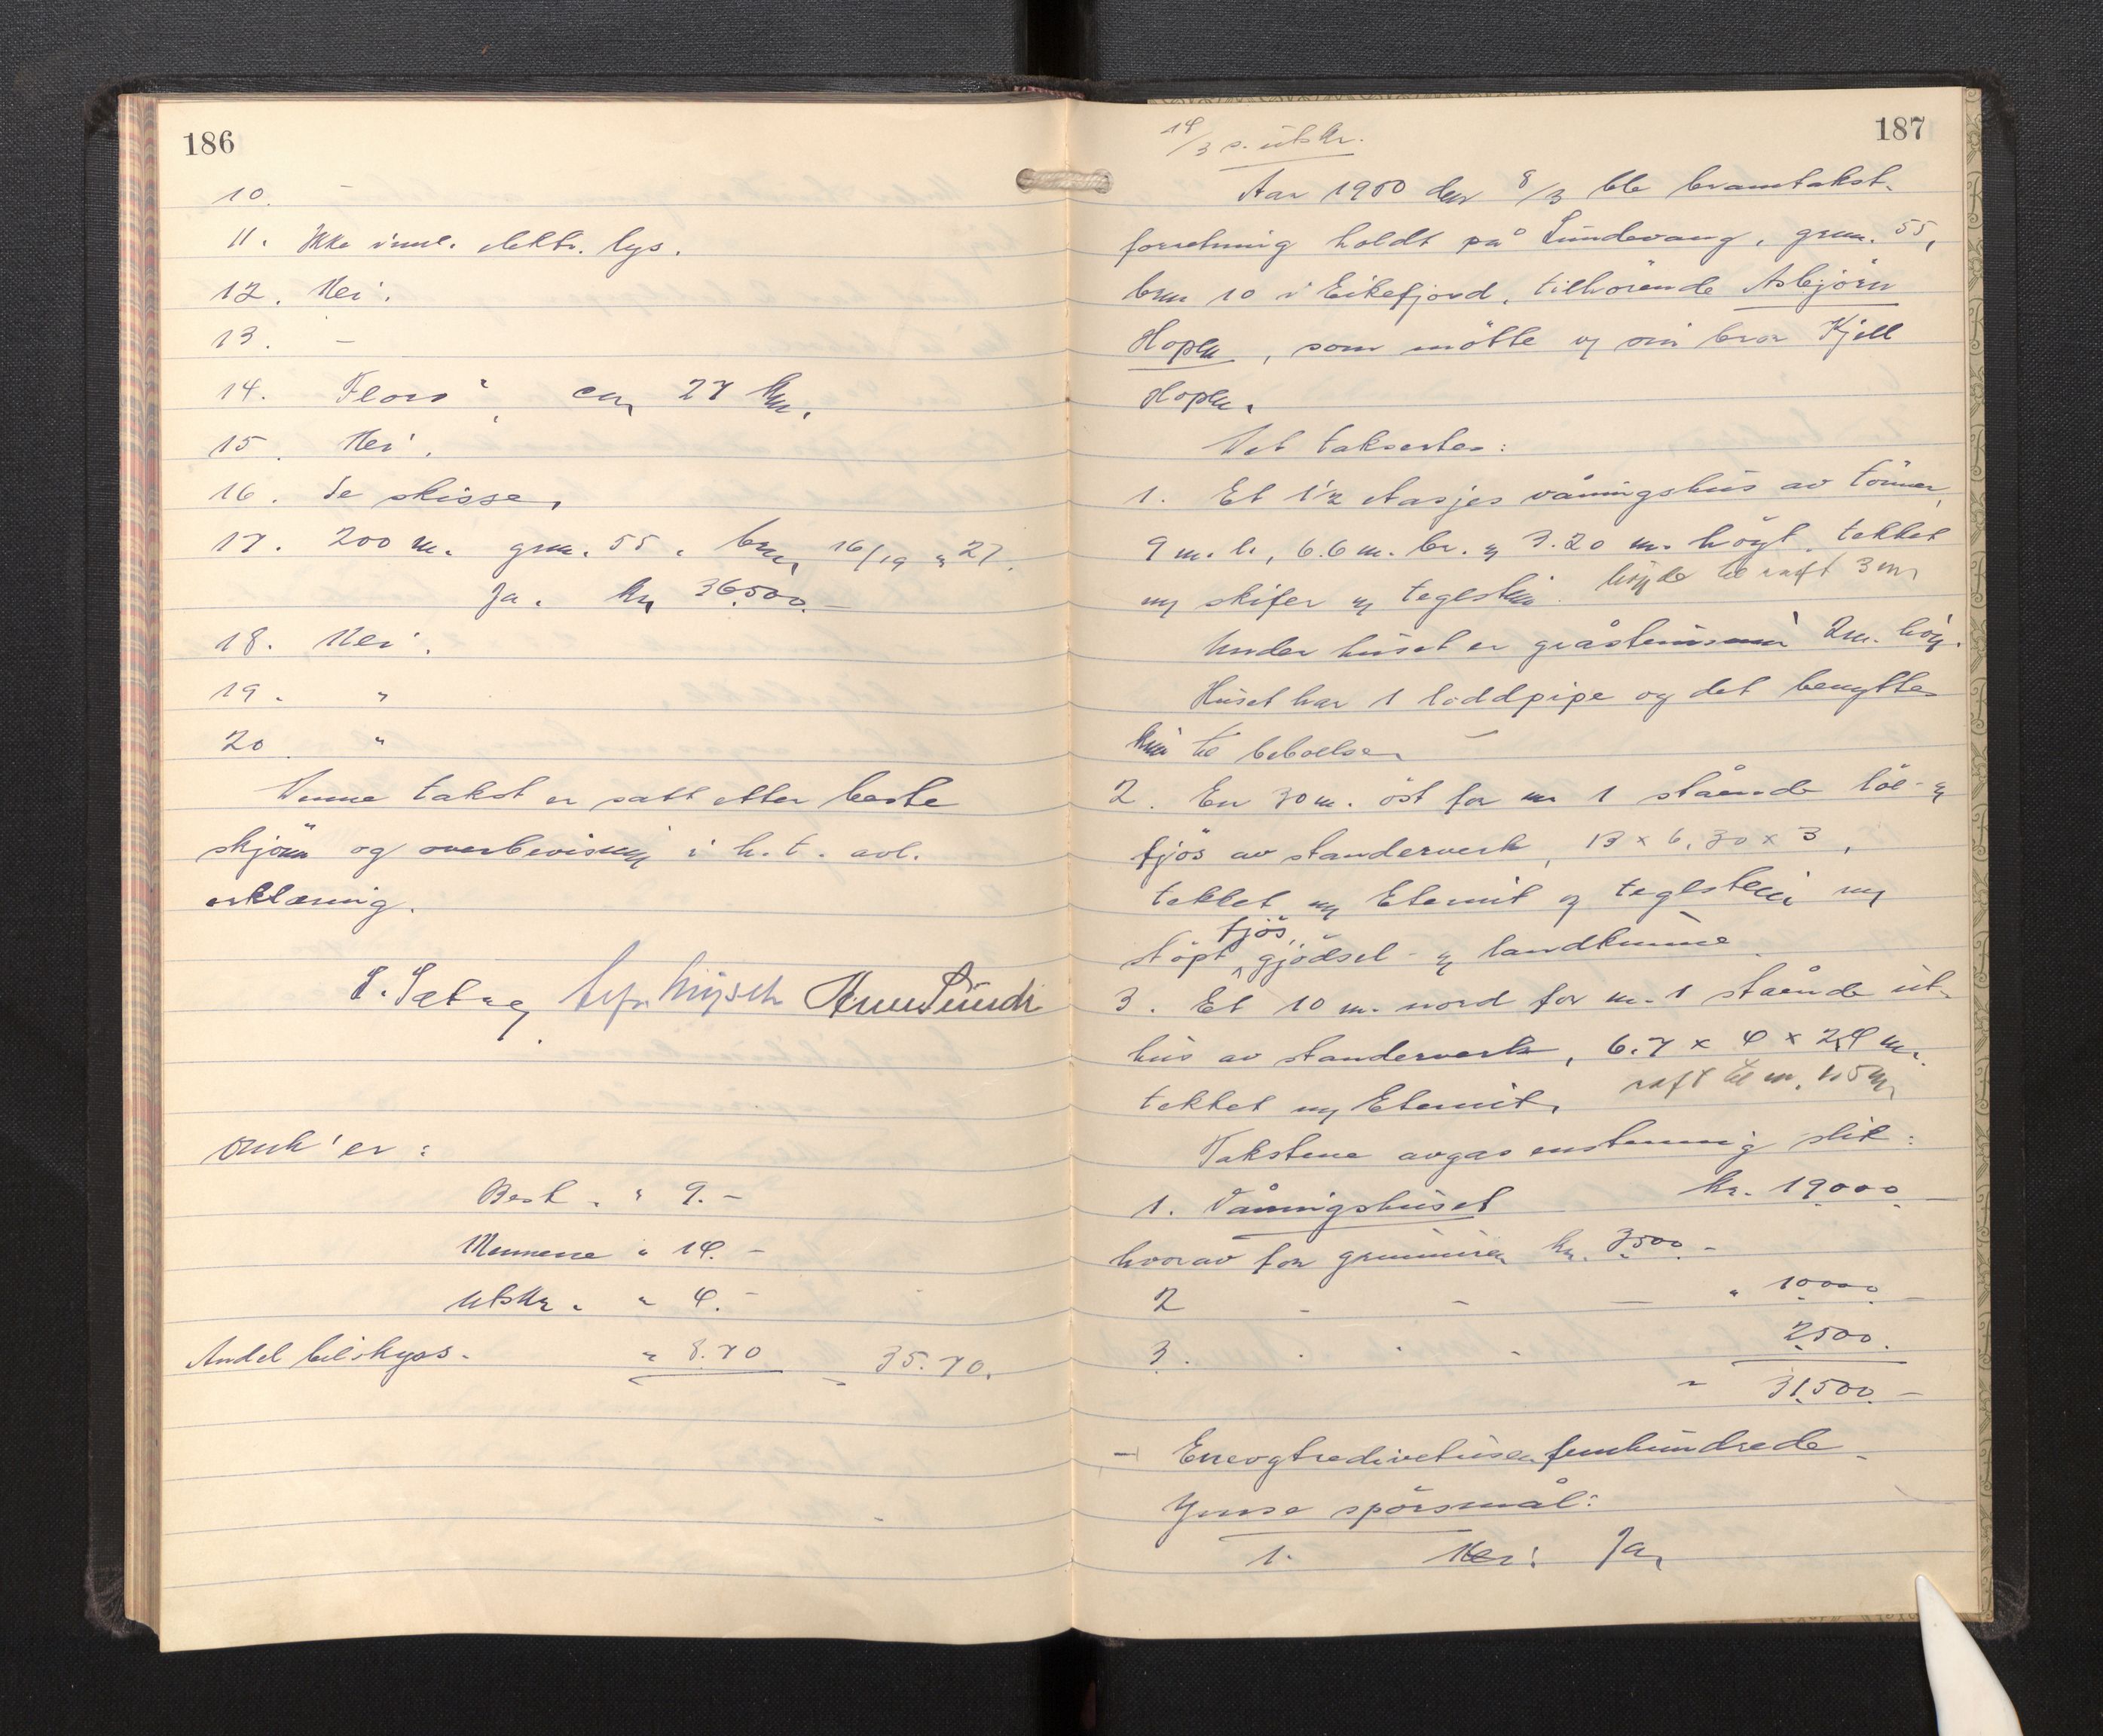 186
10. –
11. Ikke innl. elektr. lys.
12. Nei.
13. –
14. Florö, ca, 27 km.
15. Nei.
16. Se skisse,
17. 200 m. gnr. 55, bnr, 16/19 " 27.
Ja. kr, 36500.–
18. Nei.
19. "
20 "
Denne takst er satt etter beste
skjönn og overbevisning i h. t. avl.
erklæring.
S. Sætre,
Omk'er:
Best. " 9.–
Mennene " 14.–
Utskr. " 4.–
Andel bilskyss. " 8.70 35.70.
187
14/3 s. utskr.
Aar 1950 den 8/3 ble branntakst-
forretning holdt på Sundevang, gnr. 55,
bnr 10 i Eikefjord, tilhörende Asbjörn
Hopen, som mötte og sin bror Kjell
Hopen.
Det taksertes:
1. Et 1½ etasjes våningshus av tömmer,
9 m. l., 6.6 m. br. og 3.20 m. höyt, tekket
m/ skifer og teglstein. höyde til raft 3 m,
Under huset er gråsteinsmur 2 m. höy.
Huset har 1 loddpipe og det benyttes
kun til beboelse,
2. En 30 m. öst for nr 1 stående löe- og
fjös av standerverk, 13 x 6,30 x 3,
tekket m/ Eternit og teglstein m/
fjös,
stöpt gjödsel- og landkumme.
3. Et 10 m. nord for nr. 1 stående ut-
hus av standerverk, 6.7 x 4 x 2,4 m.
tekket m/ Eternit, raft til m. 1.5 m,
Takstene avgas enstemmig slik:
1. Våningshuset kr. 19000.–
hvorav for grunnmuren kr. 3500.–
2 – – – " 10000–
3. . . . 2500.
" 31500.–
– Enogtredivetusen femhundrede –
Ymse spörsmål:
1. Nei. Ja,